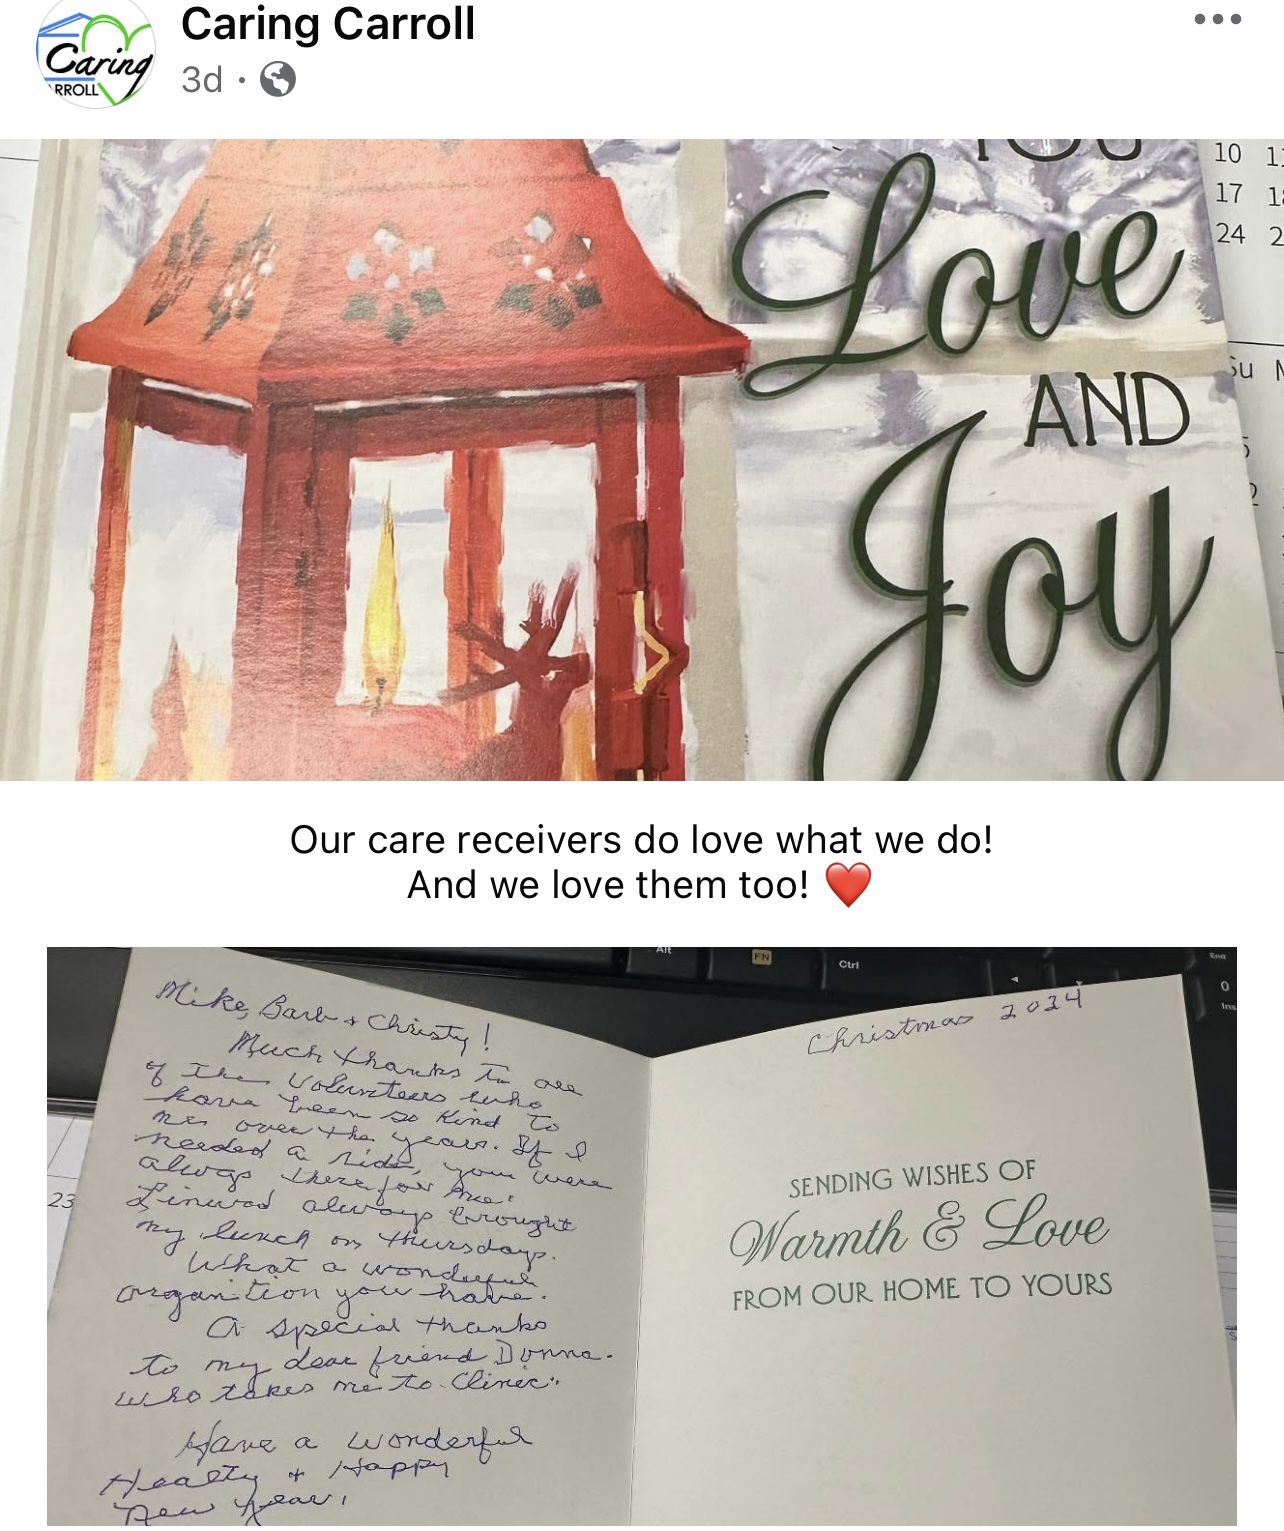 Caring Carroll
Caring
RROLL
3d ·
YOU
10
17
24
Love
AND
Su
Joy
Our care receivers do love what we do!
And we love them too! ❤️
Alt
FN
Ctrl
End
0
Ins
Mike, Barb & Christy!
Much thanks to all
of the volunteers who
have been so kind to
me over the years. If I
needed a ride, you were
always there for me.
Linwood always brought
my lunch on Thursdays.
What a wonderful
organition you have.
A special thanks
to my dear friend Donna.
who takes me to Clinic.
Have a wonderful
Healty & Happy
New Year!
23
Christmas 2024
SENDING WISHES OF
Warmth & Love
FROM OUR HOME TO YOURS